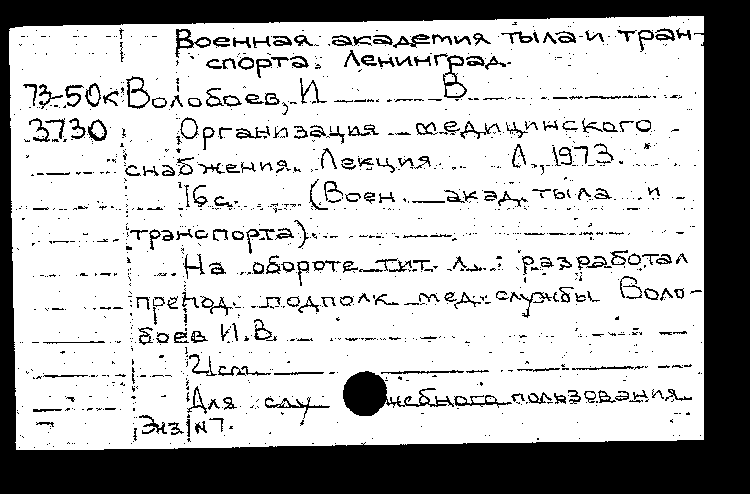 Военная академия тыла и тран-
спорта. Ленинград.
73-50к Волобоев, И В
3730 Организация медицинского
снабжения. Лекция Л., 1973.
16 с. (Воен. акад. тыла и
транспорта).
На обороте тит. л.: разработал
препод. подполк. мед. службы Воло-
боев И.В.
21 см.
Для служебного пользования
Экз №7.